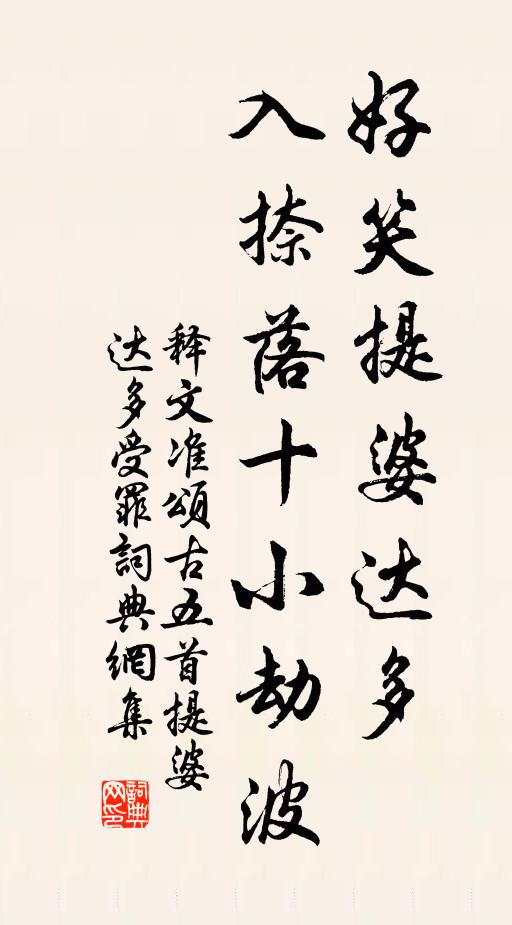 好笑提婆达多
入捺落十小劫波
释文准頌古五首提婆
达多受罪詞典網集
詞典网印